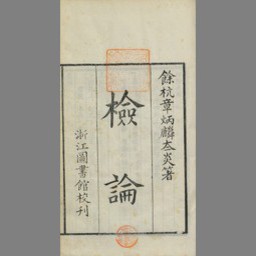 餘杭章炳麟太炎著
檢論
浙江圖書館校刊